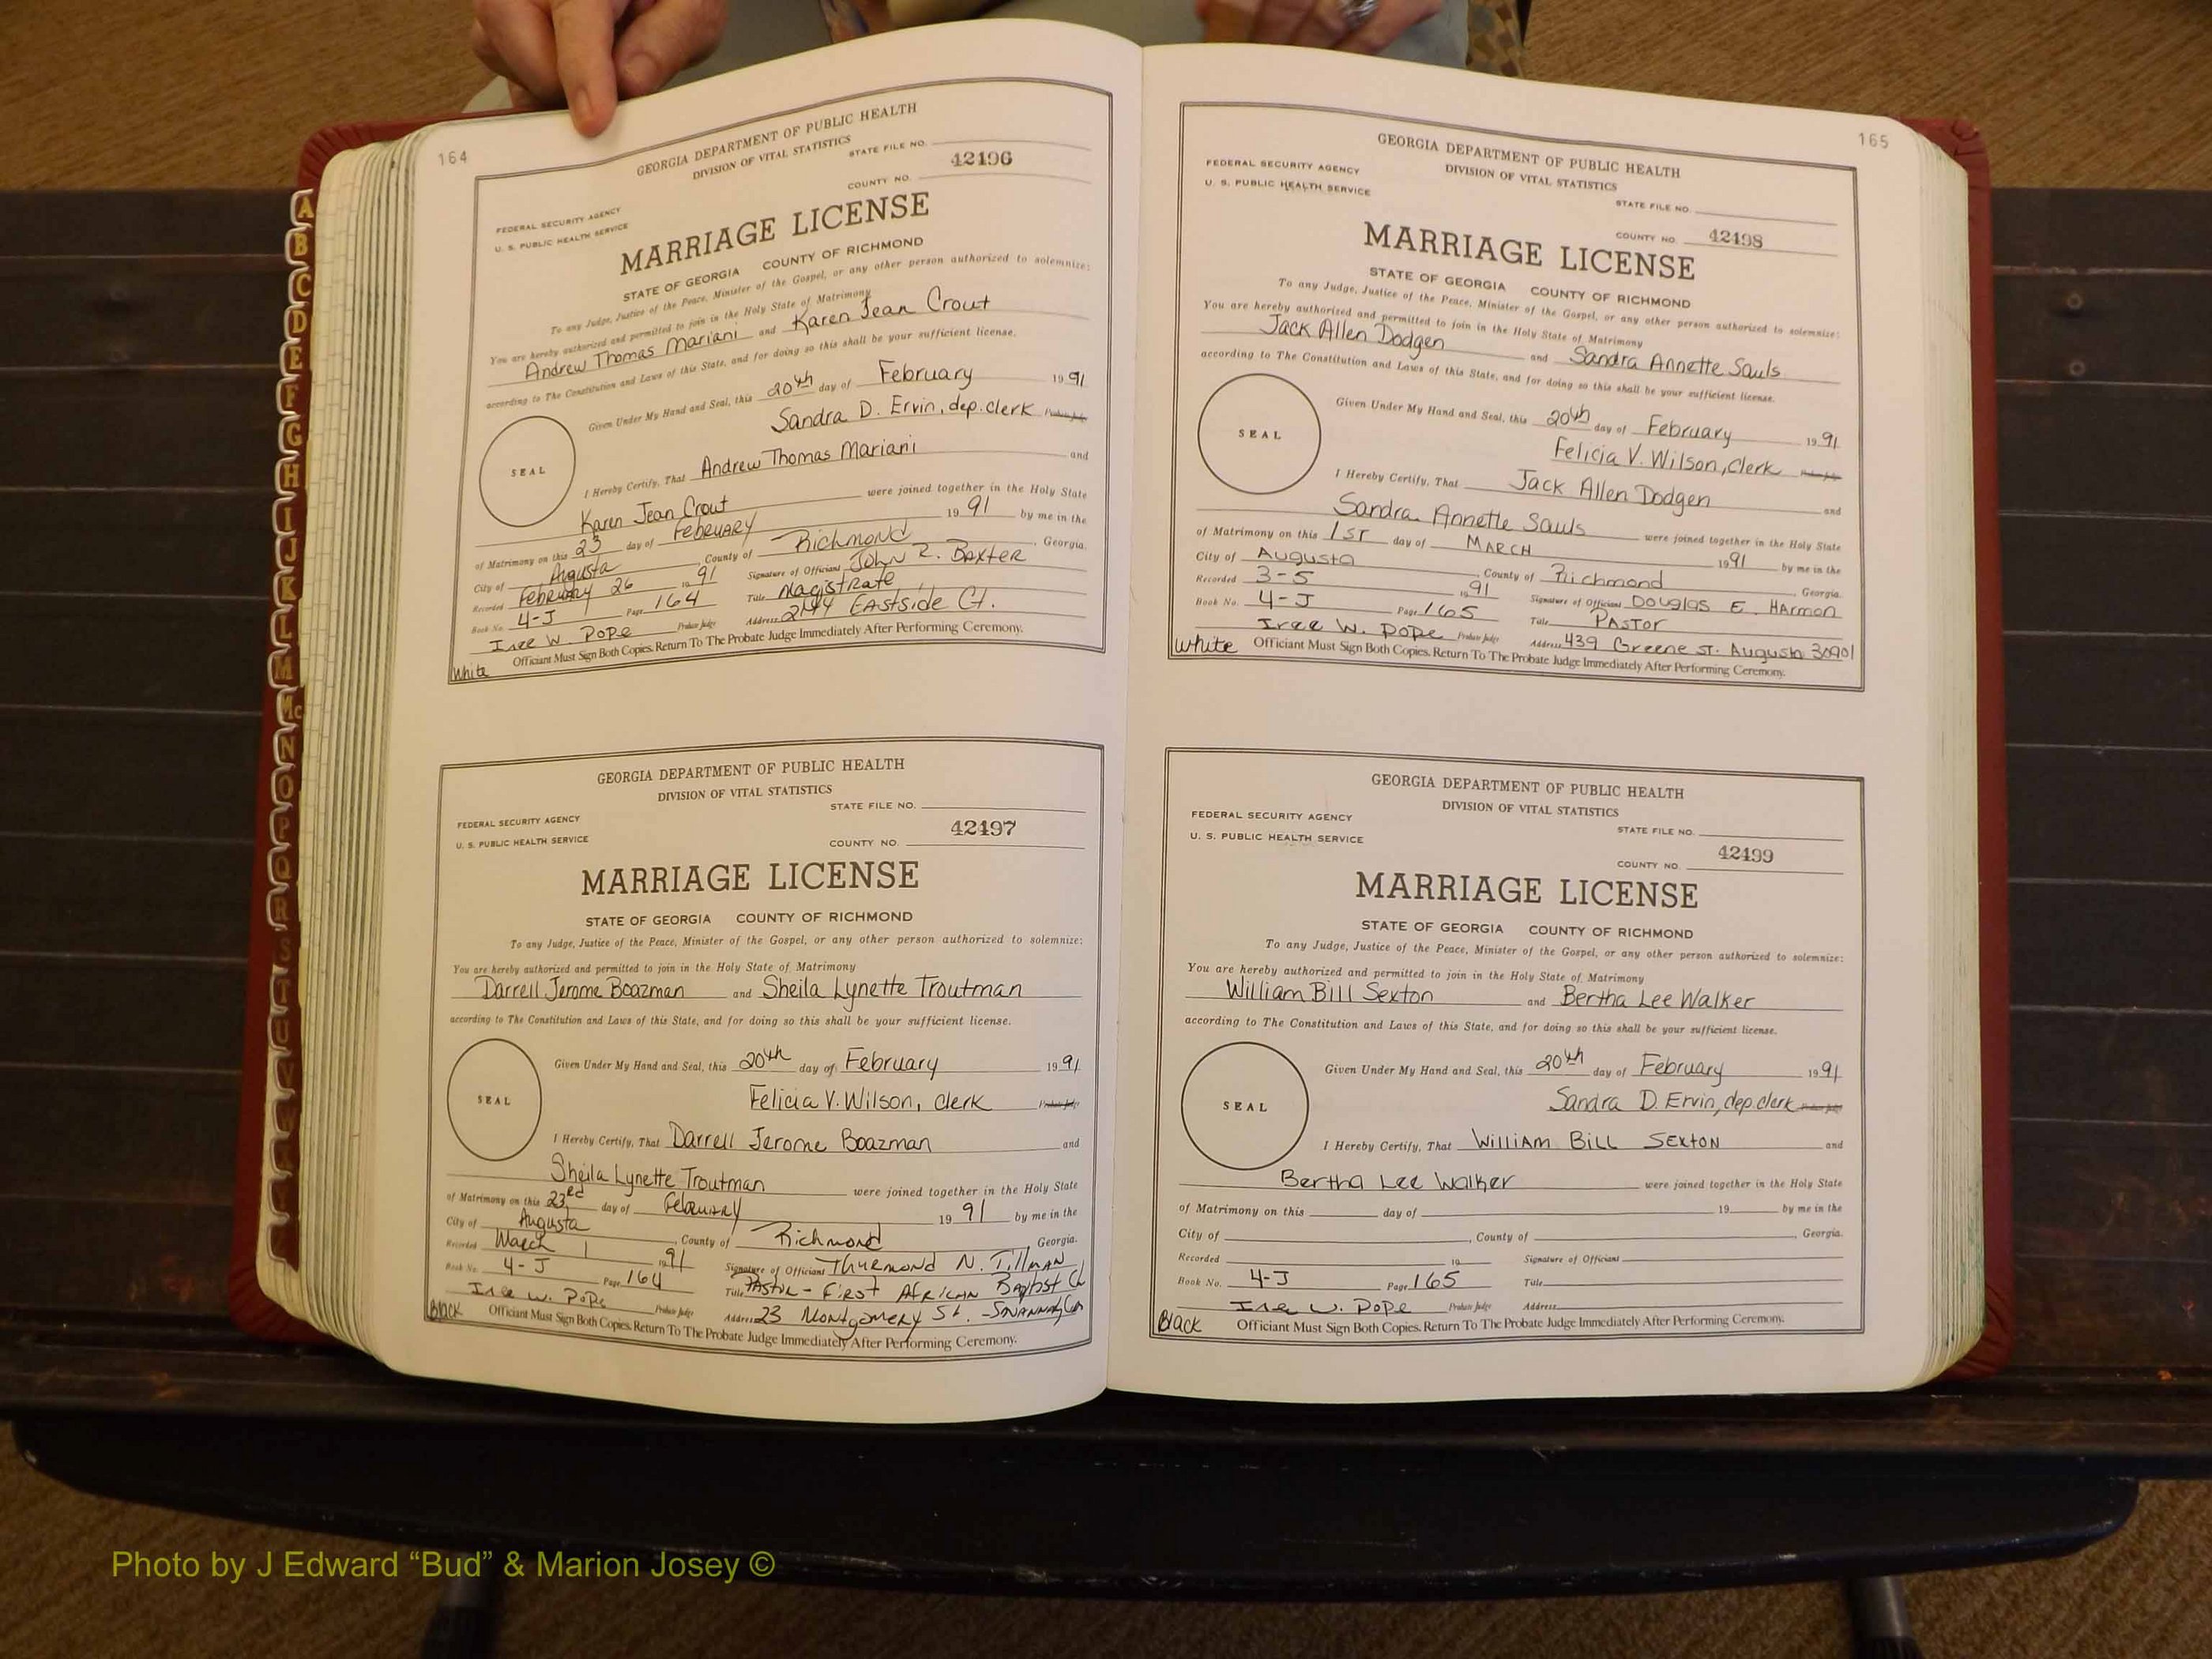 164
GEORGIA DEPARTMENT OF PUBLIC HEALTH
DIVISION OF VITAL STATISTICS
STATE FILE NO.
42496
COUNTY NO.
FEDERAL SECURITY AGENCY
U. S. PUBLIC HEALTH SERVICE
MARRIAGE LICENSE
STATE OF GEORGIA COUNTY OF RICHMOND
To any Judge, Justice of the Peace, Minister of the Gospel, or any other person authorized to solemnize:
You are hereby authorized and permitted to join in the Holy State of Matrimony
Andrew Thomas Mariani and Karen Jean Crout
according to The Constitution and Laws of this State, and for doing so this shall be your sufficient license.
Given Under My Hand and Seal, this 20th day of February 19 91
Sandra D. Ervin, dep. clerk Probate Judge
SEAL
I Hereby Certify, That Andrew Thomas Mariani and
Karen Jean Crout were joined together in the Holy State
of Matrimony on this 23 day of February 19 91 by me in the
City of Augusta, County of Richmond, Georgia.
Recorded February 26 19 91 Signature of Officiant John R. Baxter
Book No. 4-J Page 164 Title Magistrate
Isee W. Pope Probate Judge Address 2144 Eastside Ct.
White Officiant Must Sign Both Copies. Return To The Probate Judge Immediately After Performing Ceremony.
GEORGIA DEPARTMENT OF PUBLIC HEALTH
DIVISION OF VITAL STATISTICS
STATE FILE NO.
FEDERAL SECURITY AGENCY
42497
U. S. PUBLIC HEALTH SERVICE COUNTY NO.
MARRIAGE LICENSE
STATE OF GEORGIA COUNTY OF RICHMOND
To any Judge, Justice of the Peace, Minister of the Gospel, or any other person authorized to solemnize:
You are hereby authorized and permitted to join in the Holy State of Matrimony
Darrell Jerome Boazman and Sheila Lynette Troutman
according to The Constitution and Laws of this State, and for doing so this shall be your sufficient license.
Given Under My Hand and Seal, this 20th day of February 19 91
SEAL
Felicia V. Wilson, Clerk Probate Judge
I Hereby Certify, That Darrell Jerome Boazman and
Sheila Lynette Troutman were joined together in the Holy State
of Matrimony on this 23rd day of February 19 91 by me in the
City of Augusta, County of Richmond, Georgia.
Recorded March 1 19 91 Signature of Officiant Thurmond N. Tillman
Book No. 4-J Page 164 Title Pastor - First African Baptist Ch
Isee W. Pope Probate Judge Address 23 Montgomery St. - Savannah, Ga
Black Officiant Must Sign Both Copies. Return To The Probate Judge Immediately After Performing Ceremony.
165
GEORGIA DEPARTMENT OF PUBLIC HEALTH
DIVISION OF VITAL STATISTICS
FEDERAL SECURITY AGENCY
U. S. PUBLIC HEALTH SERVICE
STATE FILE NO.
COUNTY NO. 42498
MARRIAGE LICENSE
STATE OF GEORGIA COUNTY OF RICHMOND
To any Judge, Justice of the Peace, Minister of the Gospel, or any other person authorized to solemnize:
You are hereby authorized and permitted to join in the Holy State of Matrimony
Jack Allen Dodgen and Sandra Annette Sauls
according to The Constitution and Laws of this State, and for doing so this shall be your sufficient license.
Given Under My Hand and Seal, this 20th day of February 19 91
SEAL
Felicia V. Wilson, Clerk Probate Judge
I Hereby Certify, That Jack Allen Dodgen and
Sandra Annette Sauls were joined together in the Holy State
of Matrimony on this 1ST day of MARCH 19 91 by me in the
City of Augusta, County of Richmond, Georgia.
Recorded 3-5 19 91 Signature of Officiant Douglas E. Harmon
Book No. 4-J Page 165 Title Pastor
Isee W. Pope Probate Judge Address 439 Greene St. Augusta 30901
White Officiant Must Sign Both Copies. Return To The Probate Judge Immediately After Performing Ceremony.
GEORGIA DEPARTMENT OF PUBLIC HEALTH
DIVISION OF VITAL STATISTICS
FEDERAL SECURITY AGENCY
STATE FILE NO.
U. S. PUBLIC HEALTH SERVICE
COUNTY NO. 42499
MARRIAGE LICENSE
STATE OF GEORGIA COUNTY OF RICHMOND
To any Judge, Justice of the Peace, Minister of the Gospel, or any other person authorized to solemnize:
You are hereby authorized and permitted to join in the Holy State of Matrimony
William Bill Sexton and Bertha Lee Walker
according to The Constitution and Laws of this State, and for doing so this shall be your sufficient license.
Given Under My Hand and Seal, this 20th day of February 19 91
SEAL
Sandra D. Ervin, dep. clerk Probate Judge
I Hereby Certify, That William Bill Sexton and
Bertha Lee Walker were joined together in the Holy State
of Matrimony on this day of 19 by me in the
City of , County of , Georgia.
Recorded 19 Signature of Officiant
Book No. 4-J Page 165 Title
Isee W. Pope Probate Judge Address
Black Officiant Must Sign Both Copies. Return To The Probate Judge Immediately After Performing Ceremony.
A
B
C
D
E
F
G
H
I
J
K
L
M
Mc
N
O
P
Q
R
S
T
U
V
Photo by J Edward “Bud” & Marion Josey ©